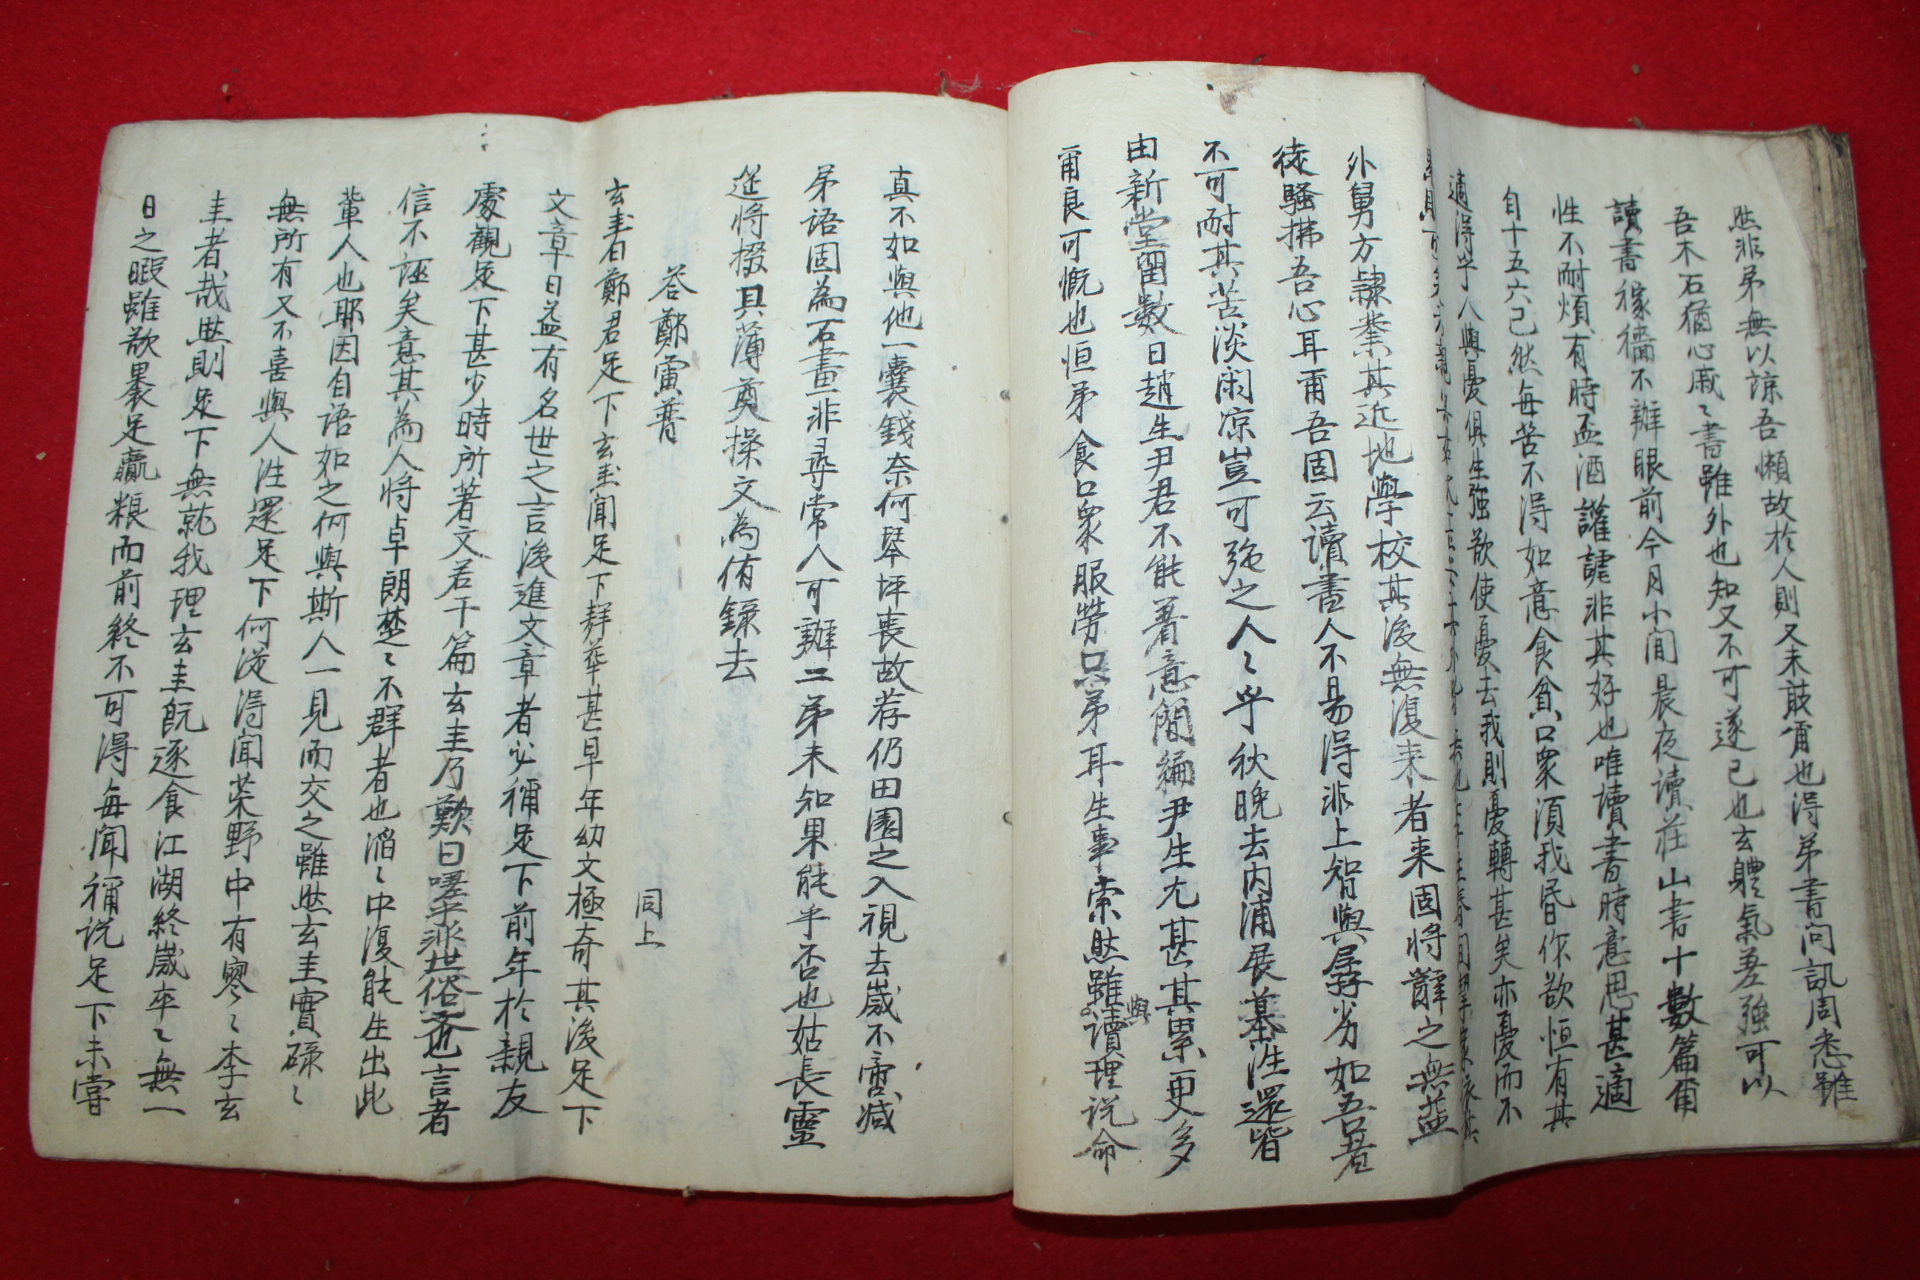 然非弟無以諒吾懶故於人則又未敢爾也得弟書問訊周悉雖
吾木石猶心戚〻書雖外也知又不可遂已也玄軆氣差強可以
讀書稼穡不辦眼前今月小間晨夜讀莊山書十數篇爾
性不耐煩有時盃酒讙謔非其好也唯讀書時意思甚適
自十五六已然每苦不得如意食貧口衆須我昏你欲恒有其
適得乎人與憂俱生強欲使憂去我則憂轉甚矣亦憂而不
外舅方隷業其近地學校其後無復来者来固將辭之無益
徒騷拂吾心耳爾吾固云讀書人不易得非上智與孱劣如吾者
不可耐其苦淡閑凉豈可強之人〻乎秋晚去内浦展墓徃還皆
由新堂留數日趙生尹君不能著意簡編尹生尤甚其累更多
爾良可慨也恒弟食口衆服勞只弟耳生事索然雖與讀理説命
真不如與他一囊錢奈何琴坪喪故荐仍田園之入視去歲不啻減
弟語固為石畫非尋常人可辦二弟未知果能乎否也姑長靈
筵將掇具薄奠操文為侑錄去
答鄭寅普
同上
玄圭白鄭君足下玄圭聞足下辤華甚早年幼文極奇其後足下
文章日益有名世之言後進文章者必稱足下前年於親友
處觀足下甚少時所著文若干篇玄圭乃歎曰嗟乎非世俗者也言者
信不誣矣意其為人將卓朗楚〻不群者也滔〻中復能生出此
輩人也耶因自語如之何與斯人一見而交之雖然玄圭實碌〻
無所有又不喜與人徃還足下何從得聞菜野中有寥〻李玄
圭者哉然則足下無就我理玄圭旣逐食江湖終歲卒〻無一
日之暇雖欲裹足贏粮而前終不可得每聞稱説足下未嘗